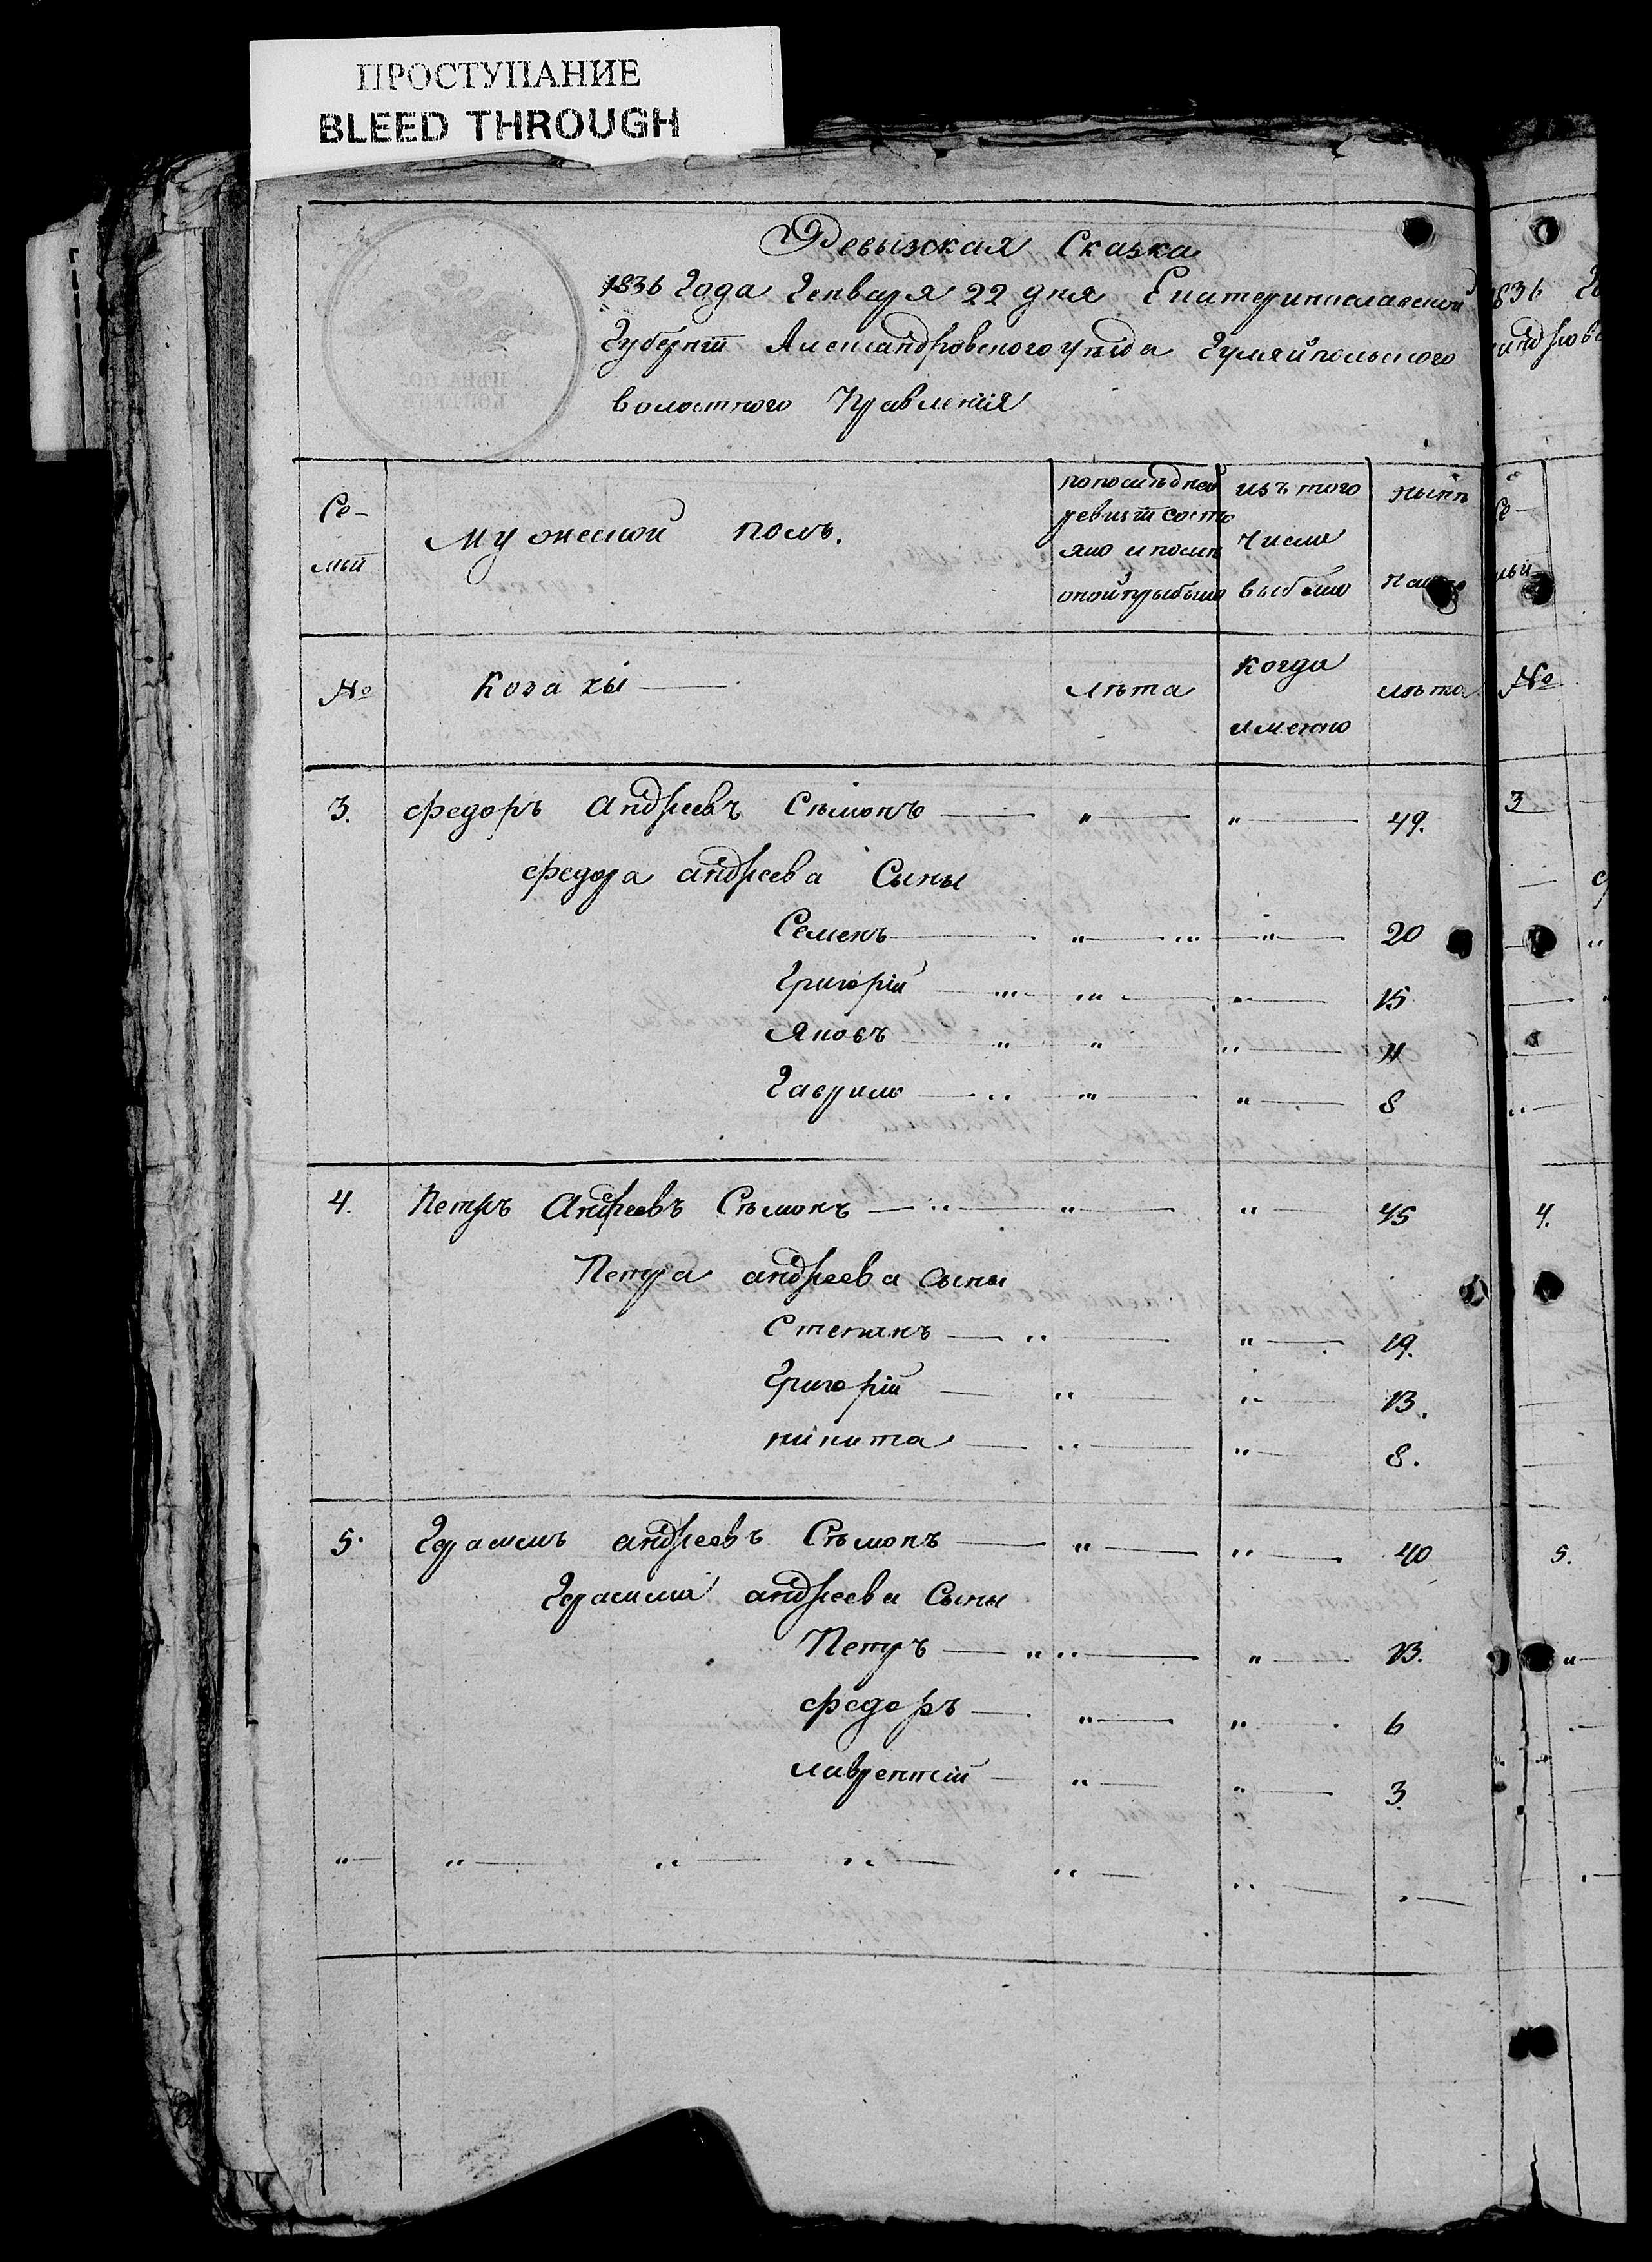 ПРОСТУПАНИЕ
BLEED THROUGH
Ревызская Сказка
1836 Года Генваря 22 дня Екатеринославской
Губернiи Александровскогоуѣзда Гуляйпольского
волостного Правленiя
Се-
мьи
мужеской полъ.
попослѣдней
ревизiи состо
яло и послѣ
оной прыбыло
изъ того
числа
выбыло
нынѣ
№
Козакы
лѣта
когда
именно
лѣта
3. федоръ Андреевъ Сѣмонъ " " 49.
федора андреева Сыны
Семенъ " " 20
Григорiй " " " 15
Яковъ " " " 11
Гаврило " " " 8
4. Петръ Андреевъ Сѣмонъ " " " 45
Петра андреева Сыны
Степанъ " " 19.
Григорiй " " 13.
никита " " 8.
5. Герасимъ андреевъ Сѣмонъ " " 40
Герасима андреева Сыны
Петръ " " " 13.
федоръ " " 6
лаврентiй " " 3
" " " " " "
1836
Се-
мьи
№
3
4.
5.